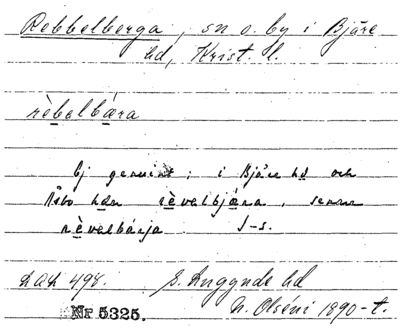 Rebbelberga, sn o. by i Bjäre
hd, Krist. l.
rèbelbæra
Ej genuint; i Bjäre hd och
Åsbo hdn rèvelbjæra, senare
rèvelbärja S-s.
LAH 498. S. Luggude hd
Nr 5325. N. Olséni 1890-t.